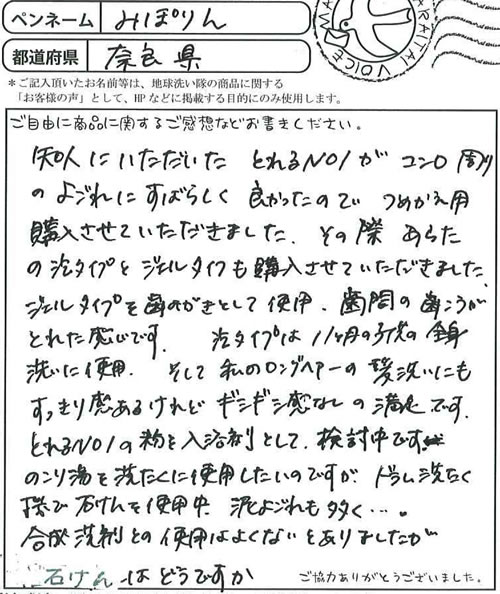 ペンネーム みぽりん
都道府県 奈良県
＊ご記入頂いたお名前等は、地球洗い隊の商品に関する
「お客様の声」として、HPなどに掲載する目的にのみ使用します。
ご自由に商品に関するご感想などお書きください。
知人にいただいた とれるNO1が コンロ周り
のよごれに すばらしく 良かったので つめかえ用
購入させていただきました. その際 あらた
の泡タイプと ジェルタイプも購入させていただきました.
ジェルタイプを歯みがきとして使用. 歯間の歯こうが
とれた感じです. 泡タイプは 11ヶ月の子供の全身
洗いに使用. そして 私のロングヘアーの髪洗いにも
すっきり感あるけれど ギシギシ感なしの満足です.
とれるNO1の粉を入浴剤として. 検討中です
のこり湯を洗たくに使用したいのですが ドラム洗たく
機で 石けんを使用中 泥よごれも多く….
合成洗剤との使用はよくないとありましたが
石けんはどうですか
ご協力ありがとうございました。
VOICE